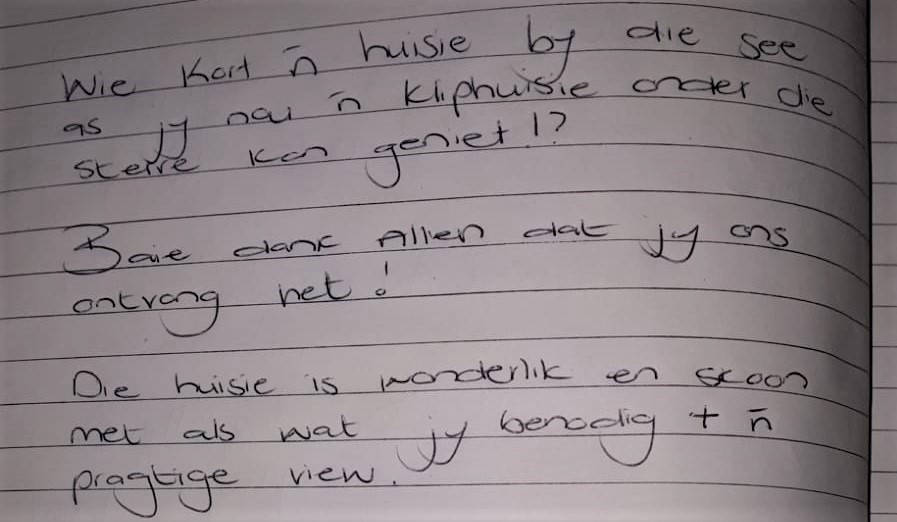 Wie Kort 'n huisie by die see
as jy nou 'n kliphuisie onder die
sterre kan geniet!?
Baie dank Allen dat jy ons
ontvang het!
Die huisie is wonderlik en skoon
met als wat jy benodig + 'n
pragtige view.